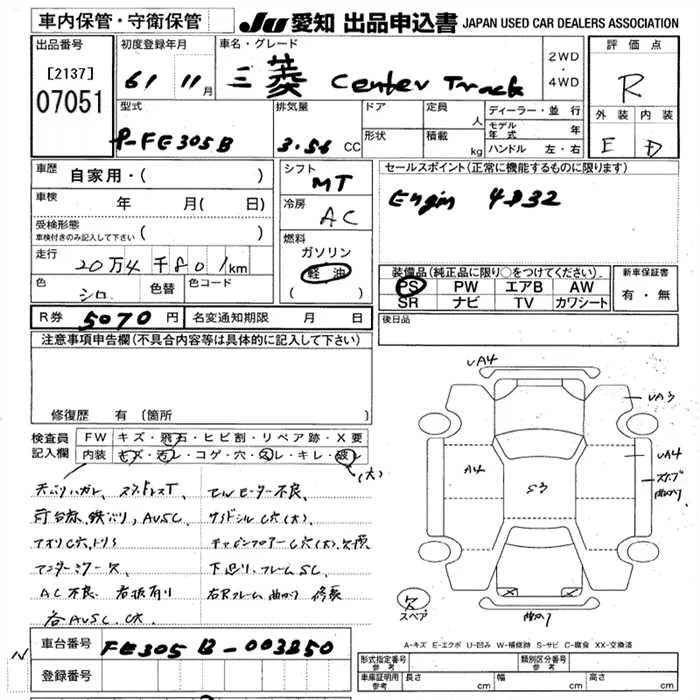 車内保管・守衛保管
JU 愛知 出品申込書 JAPAN USED CAR DEALERS ASSOCIATION
出品番号
[2137]
07051
初度登録年月
61 11月
車名・グレード
三菱 Center Truck
2WD
・
4WD
評価点
R
外装 内装
E D
型式
P-FE305B
排気量
3.56 CC
ドア
形状
定員 人
積載 kg
ディーラー・並行
モデル年式 年
ハンドル 左・右
車歴
自家用・( )
車検 年 月( 日)
受検形態
車検付きのみ記入して下さい ( )
走行
20万4千801km
色 シロ 色替 色コード
シフト
MT
冷房
AC
燃料
ガソリン
軽油
( )
セールスポイント(正常に機能するものに限ります)
Engin 4D32
装備品(純正品に限り○をつけてください)
PS PW エアB AW
SR ナビ TV カワシート
新車保証書
有・無
後日品
R券 5070円 名変通知期限 月 日
注意事項申告欄(不具合内容等は具体的に記入して下さい)
修復歴 有(箇所
検査員
記入欄
FW キズ・飛石・ヒビ割・リペア跡・X要
内装 キズ・汚レ・コゲ・穴・スレ・キレ・破レ
(大)
セルモーター不良、
サイドシルC穴(大)
AC不良、看板有り
下廻り、フレームSC、
右Rフレーム曲がり 修長
UA4
UA3
UA4
A4
S3
スペア
A-キズ E-エクボ U-凹み W-補修跡 S-サビ C-腐食 XX-交換済
車台番号 FE305B-003850
登録番号
N
形式指定番号 参考
類別区分番号 参考
車庫証明用 参考 長さ cm 幅 cm 高さ cm